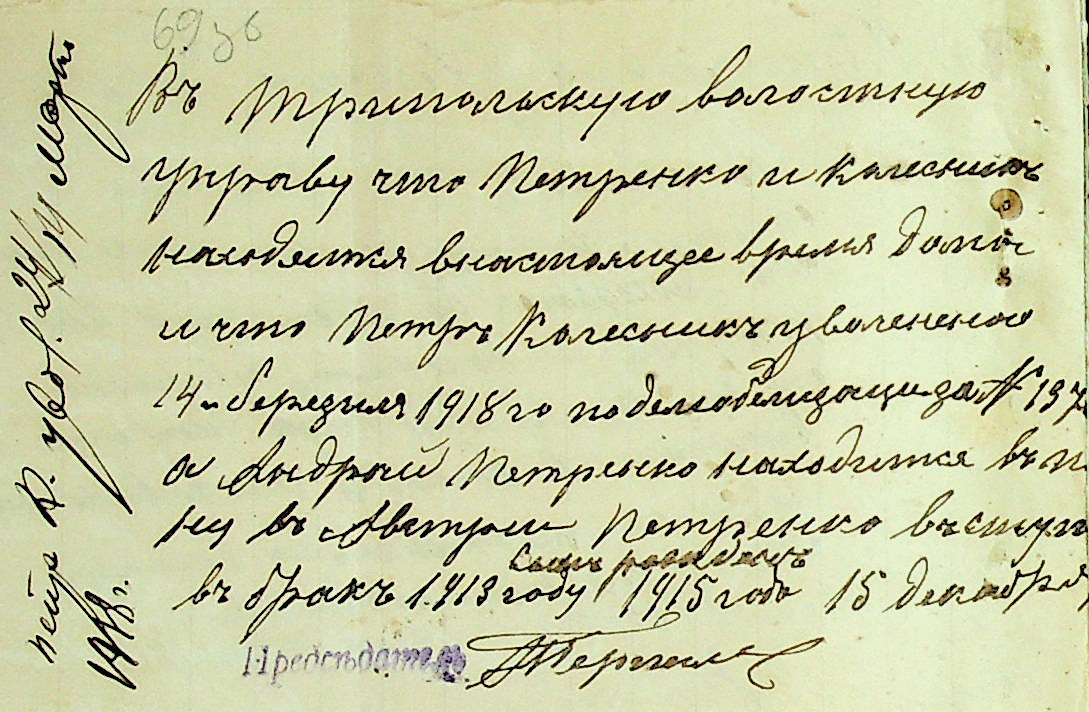 69 об
Въ Трипольскую волостную
управу что Петренко и Колесникъ
находятся внастоящее время дома
и что Петръ Колесникъ уволененою
14 березиля 1918 го по демобелизации за № 137
а Андрей Петренко находится въ п
ну въ Австрии Петренко въступ
сынъ рожденъ
въ бракъ 1913 году 1915 года 15 декабря
Предсѣдатель
Петр К. увол. 24/14 Март.
1918 г.